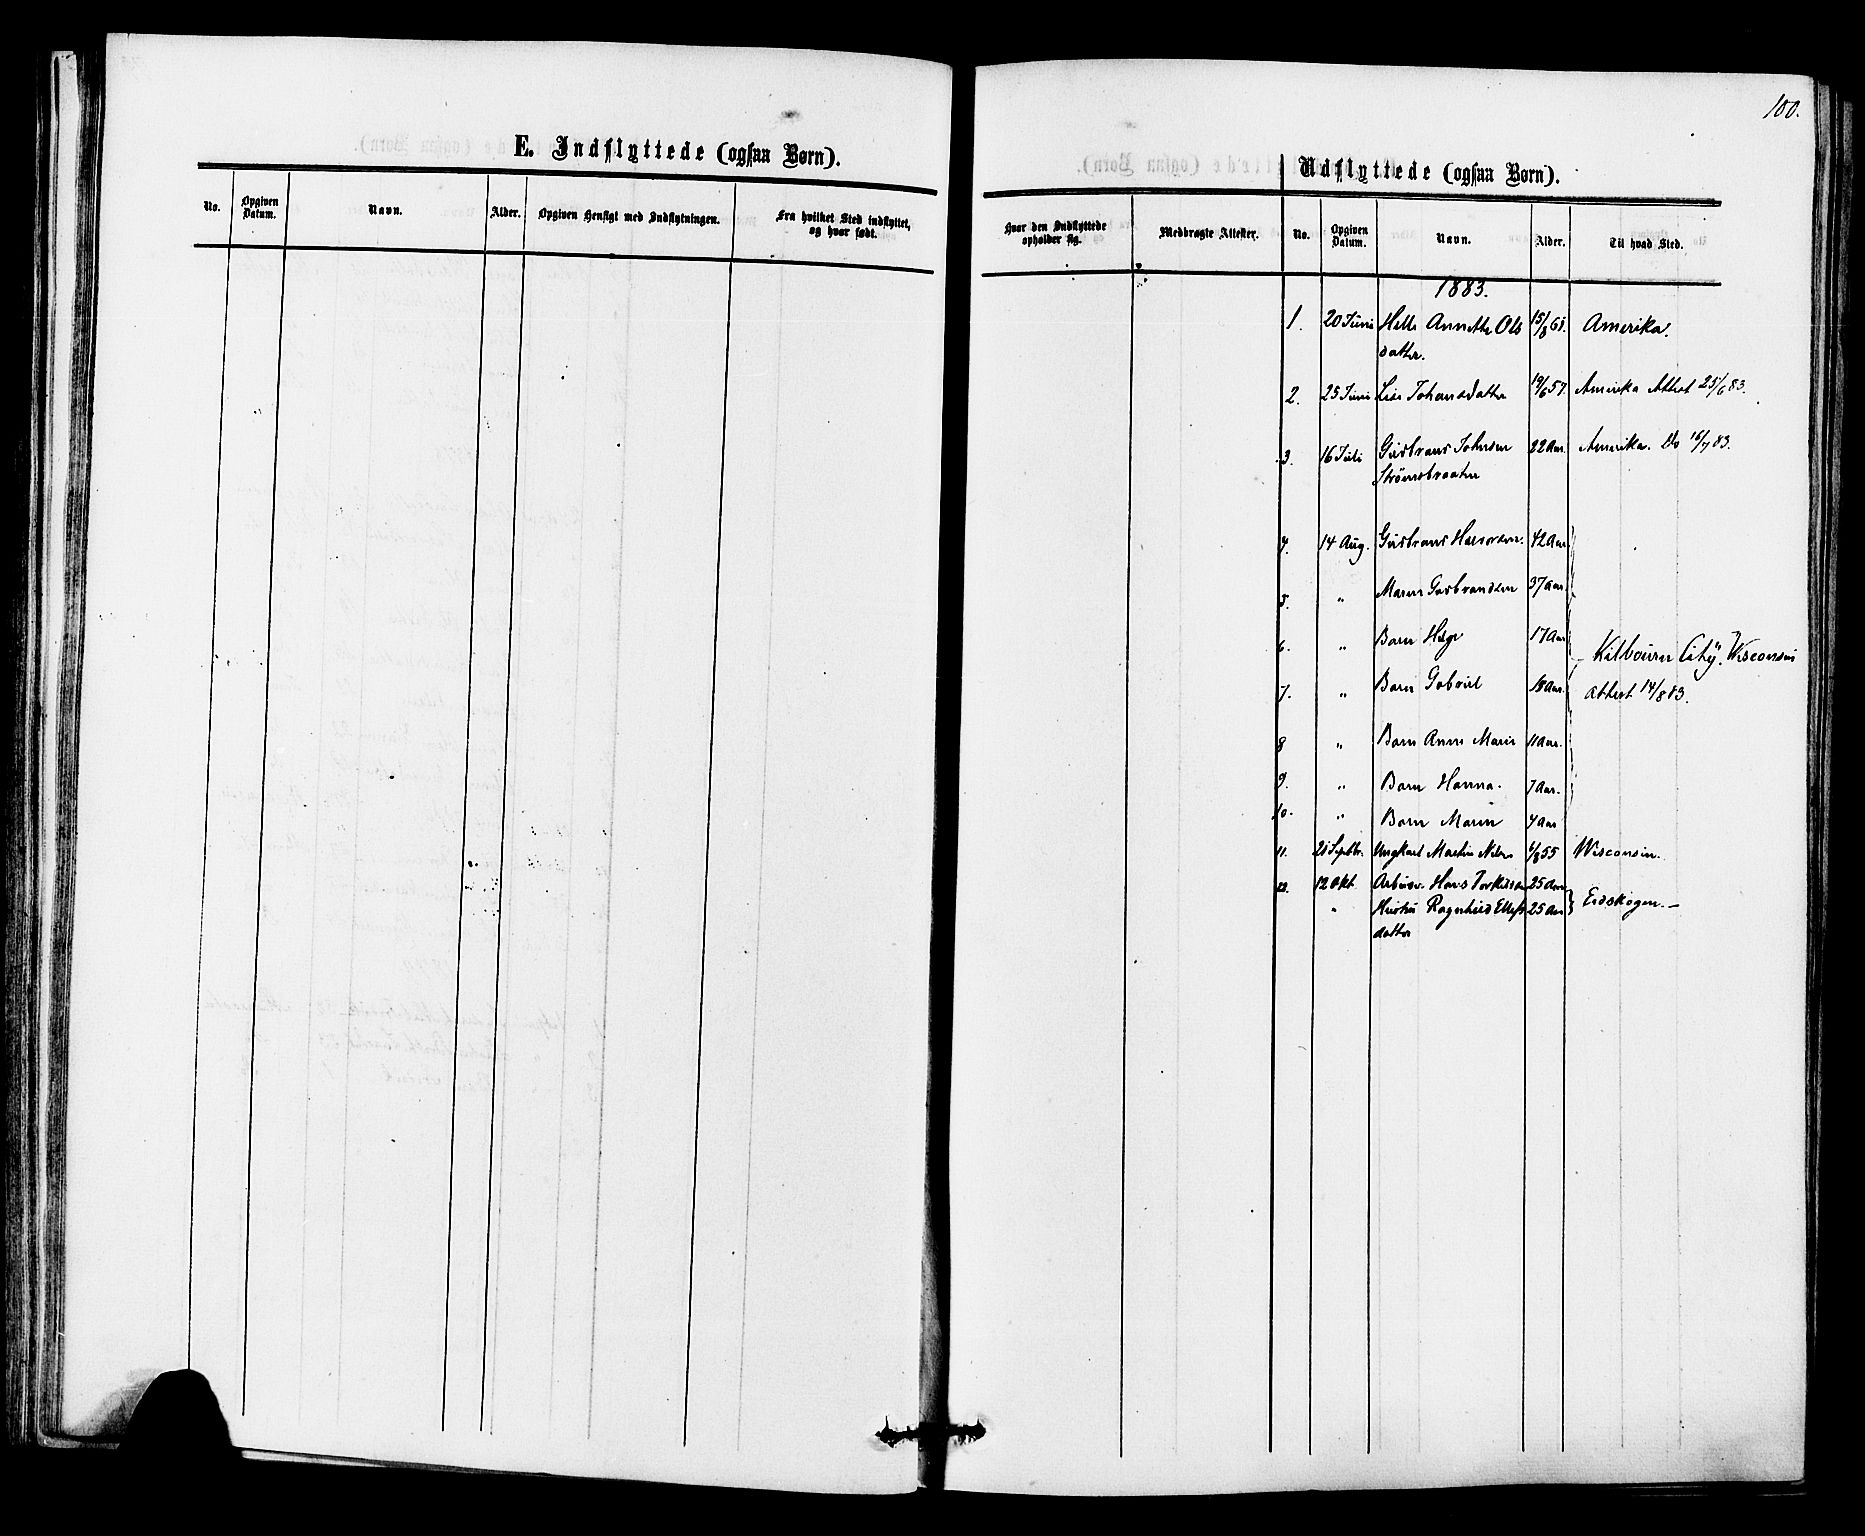 100.
E. Indflyttede (ogsaa Børn).
No. Opgiven Datum. Navn. Alder. Opgiven Hensigt med Indflytningen. Fra hvilket Sted indflyttet, og hvor født.
Udflyttede (ogsaa Børn).
Hvor den Indflyttede opholder sig. Medbragte Attester. No. Opgiven Datum. Navn. Alder. Til hvad Sted.
1883.
1. 20 Juni Helle Annette Ols 15/8 61. Amerika.
datter.
2. 25 Juni Lise Johansdatter 19/6 57. Amerika Attest 25/6 83.
3. 16 Juli Gudbrand Johnsen 22 Aar. Amerika. Do 16/7 83.
Strømsbraaten
4. 14 Aug. Gudbrand Halvorsen. 42 Aar
5. " Maren Gudbrandsen 37 Aar.
6. " Barn Helge 17 Aar
Kilbourn City, Wisconsin
7. " Barn Gabriel Aar. Attest 14/8 83.
8 " Barn Anne Marie 11 Aar.
9. " Barn Hanna. 7 Aar.
10. " Barn Maren 4 Aar
11. 21 Septbr. Ungkarl Martin Nils 1/8 55 Wisconsin.
12. 12 Okt. Hans Torkildsen 25 Aar
" Hustru Ragnhild Ellefs 25 Aar Eidskogen.
datter